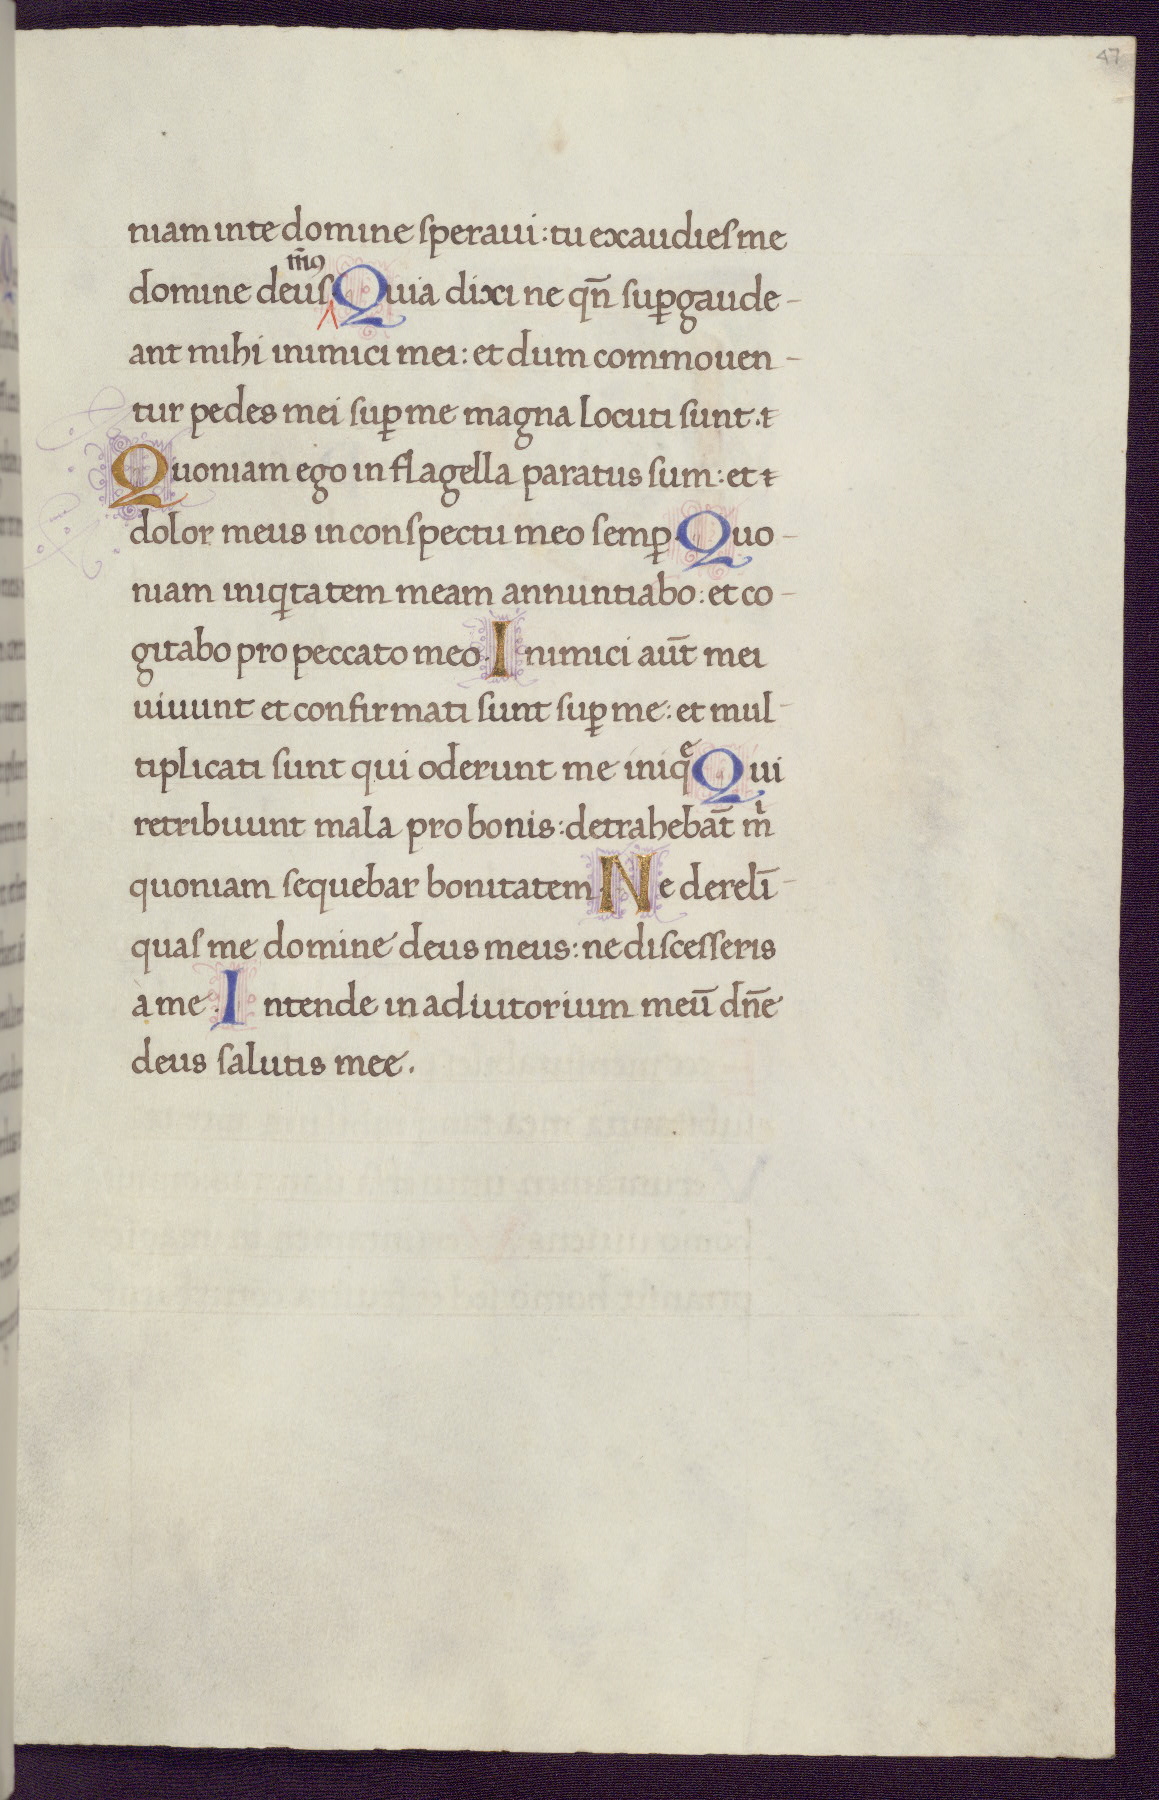 47
niam in te domine speraui: tu exaudies me
domine deus m̅s Quia dixi ne qn̅ suꝑgaude-
ant mihi inimici mei: et dum commouen-
tur pedes mei suꝑ me magna locuti sunt. &
Quoniam ego in flagella paratus sum: et &
dolor meus in conspectu meo semꝑ. Quo-
niam iniqͥtatem meam annuntiabo: et co-
gitabo pro peccato meo. Inimici aut̅ mei
uiuunt et confirmati sunt suꝑ me: et mul-
tiplicati sunt qui oderunt me iniqͤ Qui
retribuunt mala pro bonis: detrahebat̅ mͥ
quoniam sequebar bonitatem. Ne dereli̅-
quas me domine deus meus: ne discesseris
a me. Intende in adiutorium meu̅ dn̅e
deus salutis mee.